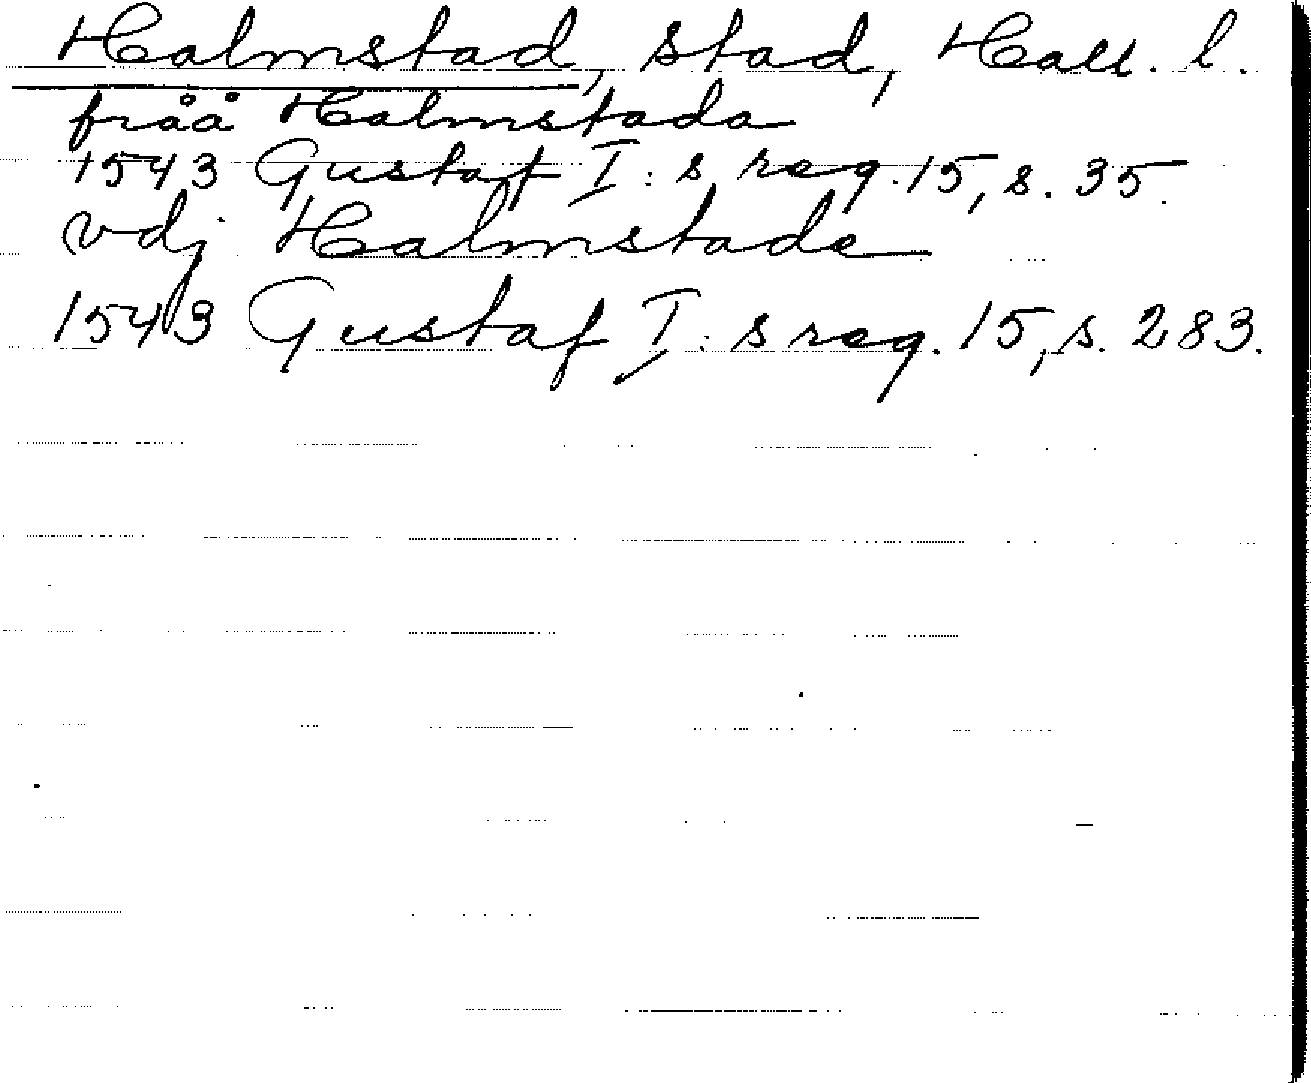 Halmstad, stad, Hall. l.
fråå Halmstada
1543 Gustaf I:s reg. 15, s. 35.
vdj Halmstade
1543 Gustaf I:s reg. 15, s. 283.